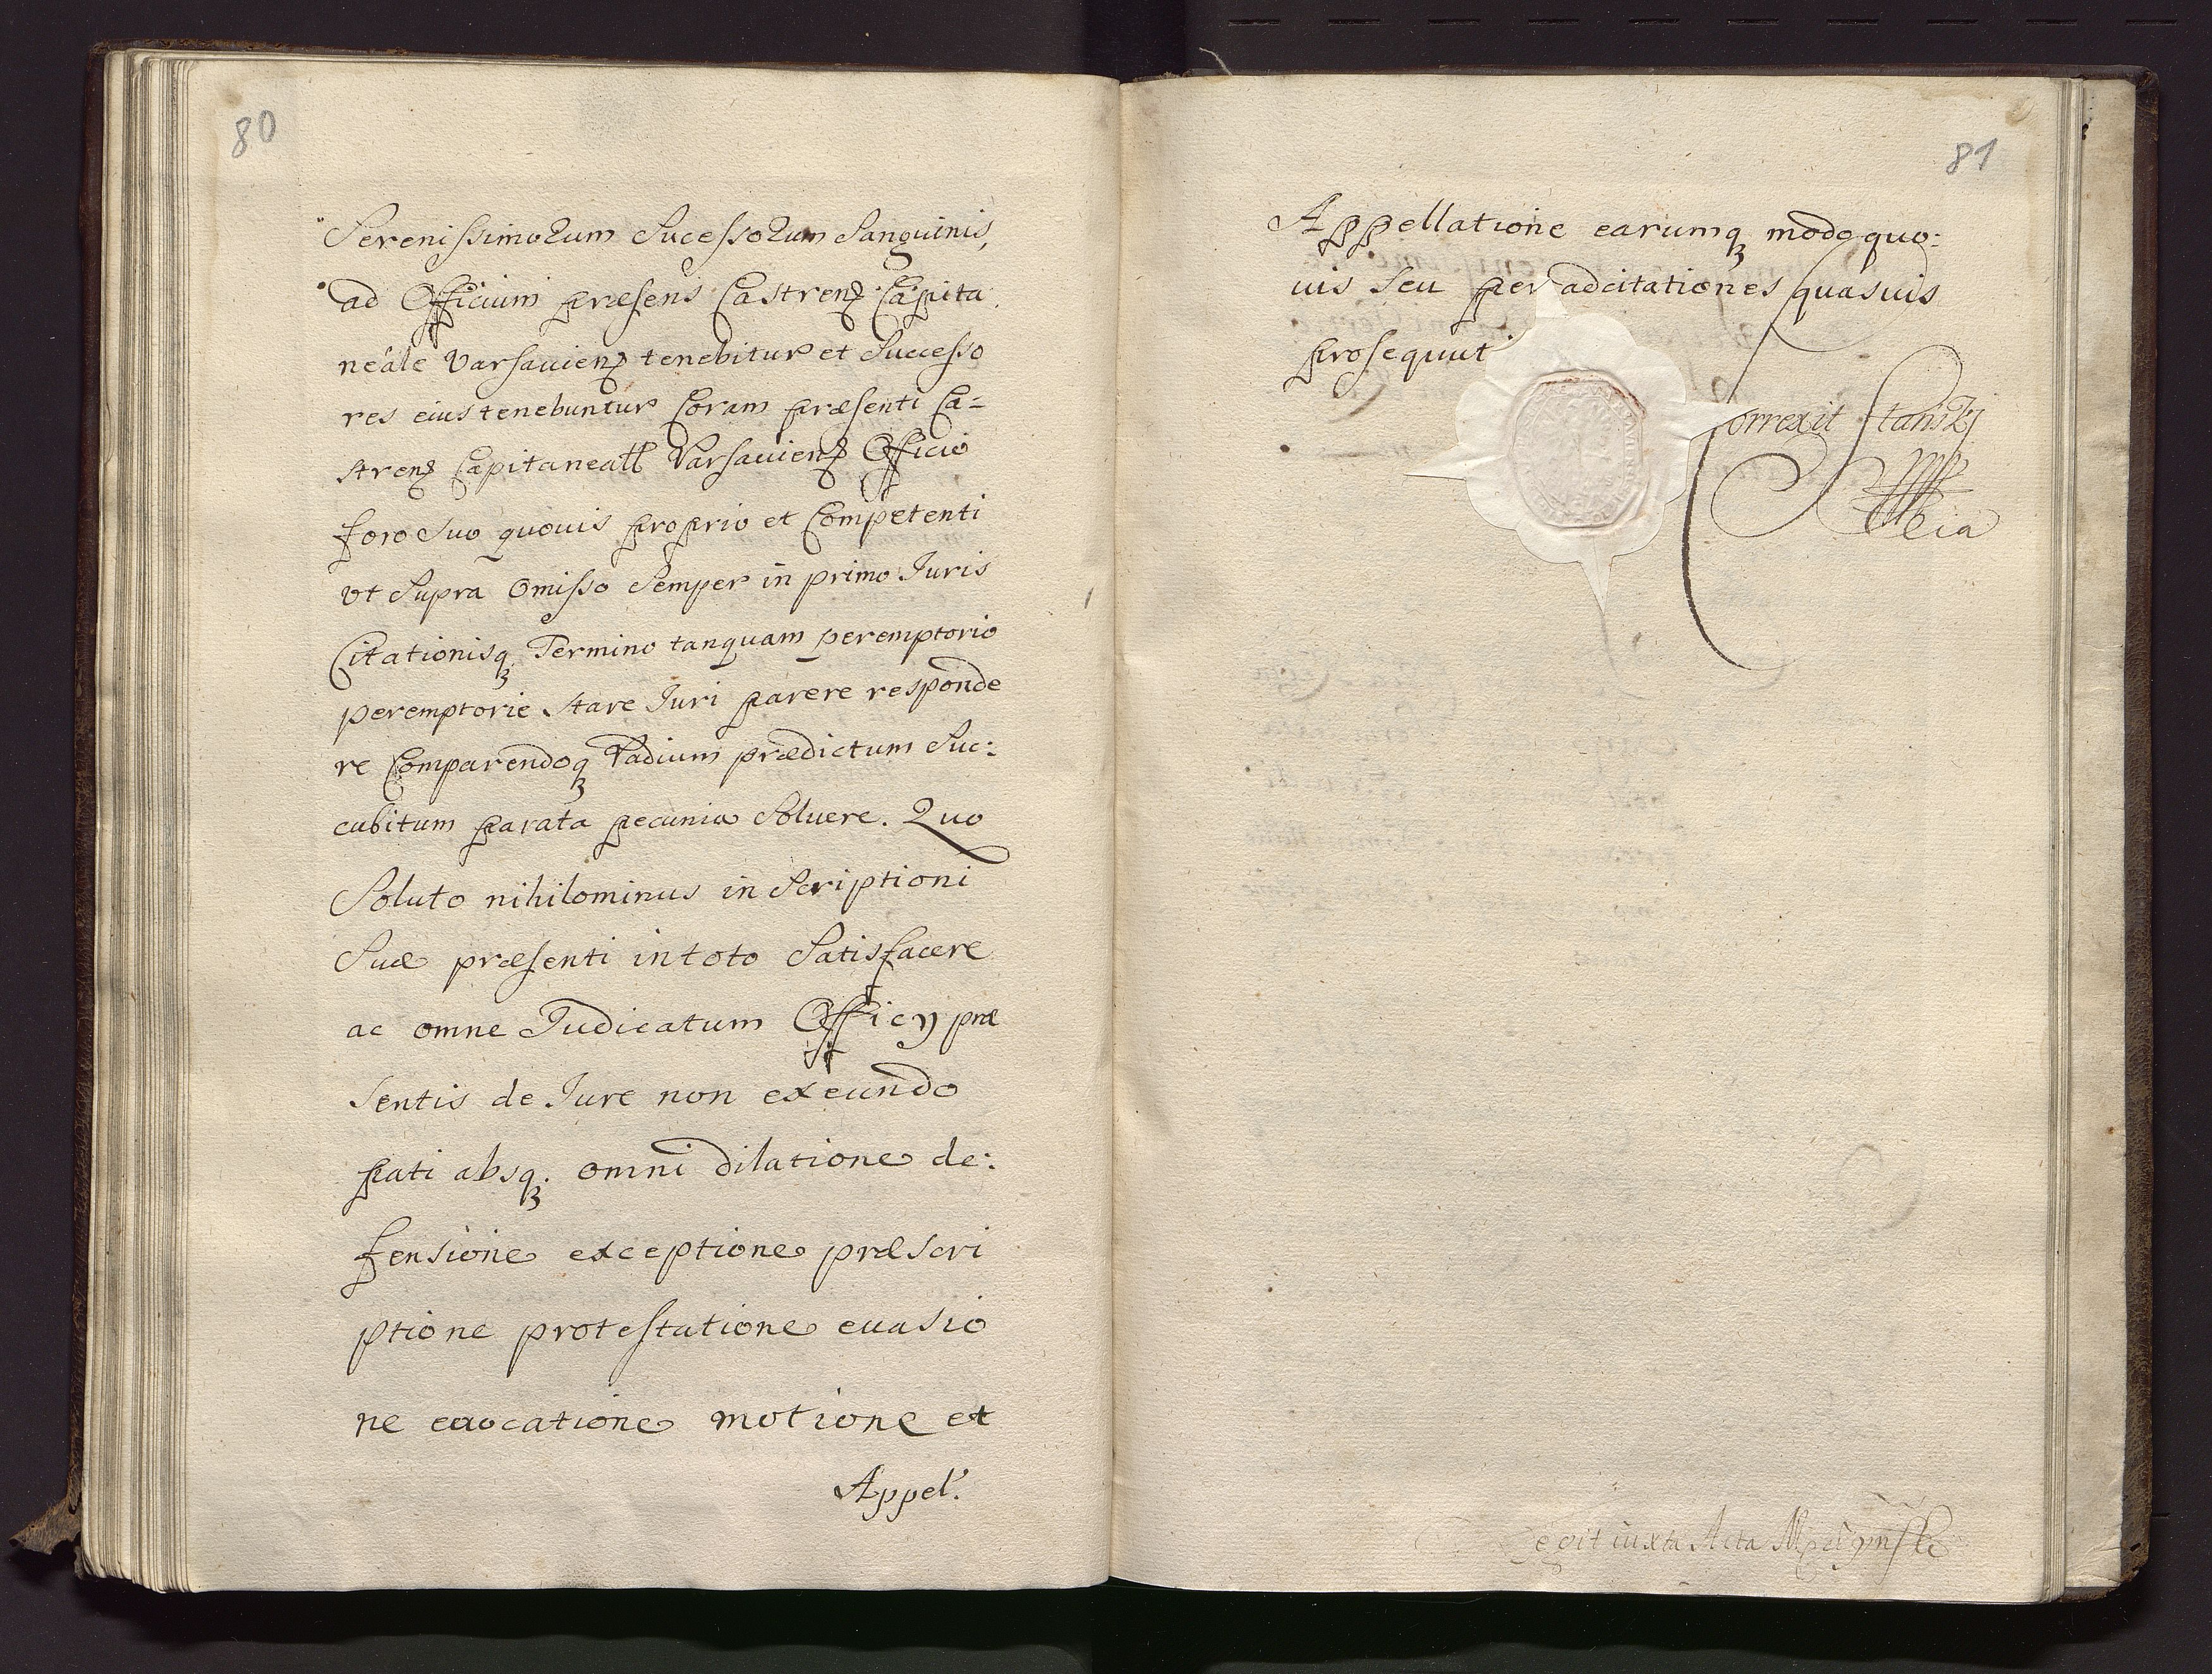 80
Serenissimorum Sucessorum Sanguinis,
ad Officium præsens Castrenꝫ Capita
neale Varsauienꝫ tenebitur et Successo
res eius tenebuntur Coram præsenti Ca=
strenꝫ Capitaneall Varsauienꝫ Officio
foro Suo quouis proprio et Competenti
vt Supra Omisso Semper in primo Iuris
Citationisqꝫ Termino tanquam peremptorio
peremptorie Stare Iuri parere responde
re Comparendoqꝫ Vadium prædictum Suc:
cubitum parata pecunia Soluere. Quo
Soluto nihilominus in Scriptioni
Suæ præsenti in toto Satisfacere
ac omne Iudicatum Officÿ præ
sentis de Iure non exeundo
pati absqꝫ. omni dilatione de:
fensione exceptione præscri
ptione protestatione euasio
ne euocatione motione et
Appel.
81
Appellatione earumqꝫ modo quo:
uis Seu per adcitationes quasuis
prosequut
Correxit Stanski
mp
legit iuxta Acta